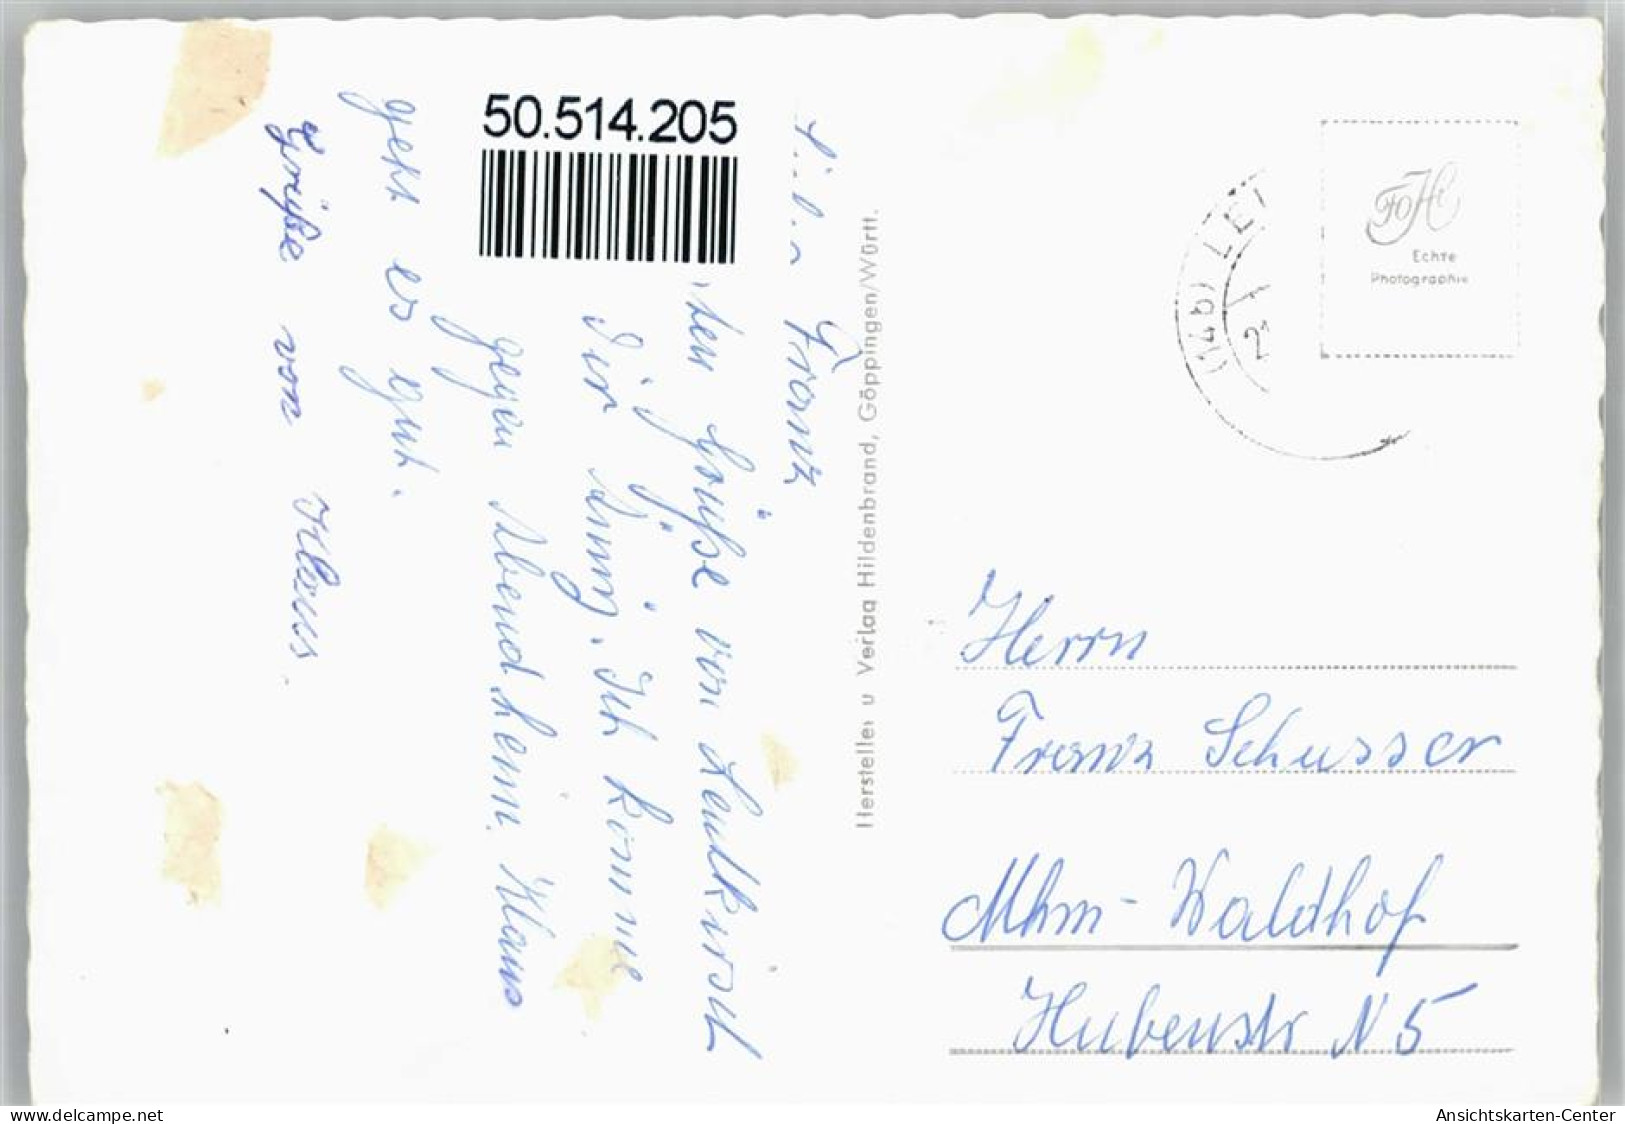 50.514.205
Franz
Grüße von Leutkirch
Dir Anny. Ich komme
gegen Abend heim. Klaus
geht es gut.
Grüße von Klaus.
Hersteller u Verlag Hildenbrand, Göppingen/Württ.
(14b) LE
2.
FoHi
Echte
Photographie
Herrn
Franz Schusser
Mhm-Waldhof
Hubenstr N 5
www.delcampe.net
Ansichtskarten-Center